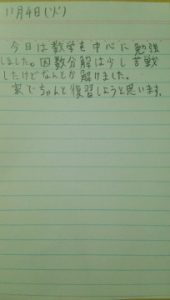 11月4日(火)
今日は数学を中心に勉強
しました。因数分解は少し苦戦
したけどなんとか解けました。
家でちゃんと復習しようと思います。